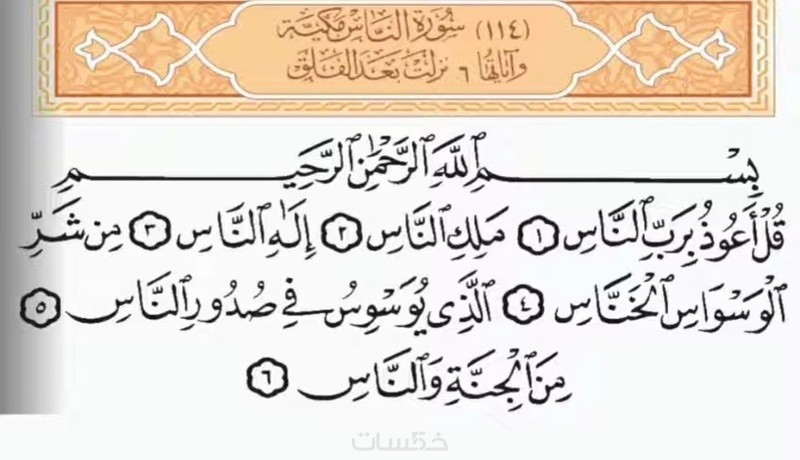 (١١٤) سُورَةُ النَّاسِ مَكِيَّة
وآياتها ٦ نزلت بعد الفلق
بِسْمِ ٱللَّهِ ٱلرَّحْمَٰنِ ٱلرَّحِيمِ
قُلْ أَعُوذُ بِرَبِّ ٱلنَّاسِ ١ مَلِكِ ٱلنَّاسِ ٢ إِلَٰهِ ٱلنَّاسِ ٣ مِن شَرِّ
ٱلْوَسْوَاسِ ٱلْخَنَّاسِ ٤ ٱلَّذِى يُوَسْوِسُ فِى صُدُورِ ٱلنَّاسِ ٥
مِنَ ٱلْجِنَّةِ وَٱلنَّاسِ ٦
خمسات